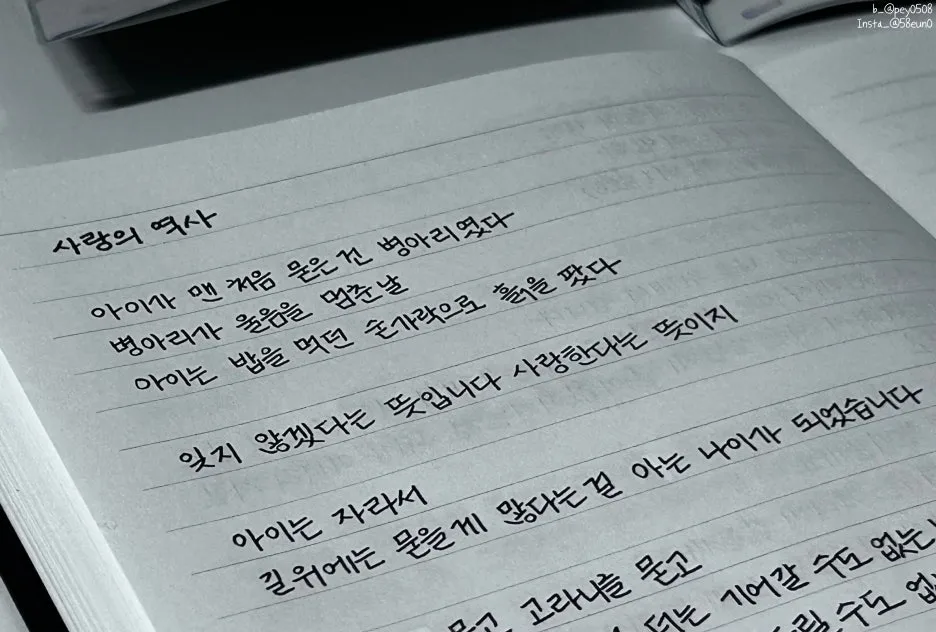 b_@pey0508
Insta_@58eun0
사랑의 역사
아이가 맨 처음 묻은 건 병아리였다
병아리가 울음을 멈춘 날
아이는 밥을 먹던 손가락으로 흙을 팠다
잊지 않겠다는 뜻입니다 사랑한다는 뜻이지
아이는 자라서
길 위에는 묻을 게 많다는 걸 아는 나이가 되었습니다
묻고 고라니를 묻고
더는 기어갈 수도 없는
수도